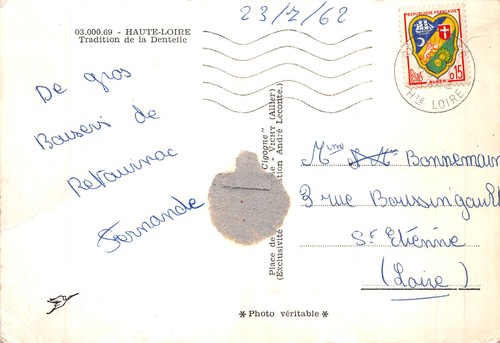 23/7/62
03.000.69 - HAUTE-LOIRE
Tradition de la Dentelle
De gros
Baisers de
Retournac
Fernande
Place de
(Exclusivité
Cigogne"
- VICHY (Allier)
ation André Leconte.)
REPUBLIQUE FRANÇAISE
POSTES
0,15
ALGER
HTE LOIRE
Mme Bonnemain
3 rue Boussingault
St Etienne
(Loire)
* Photo véritable *